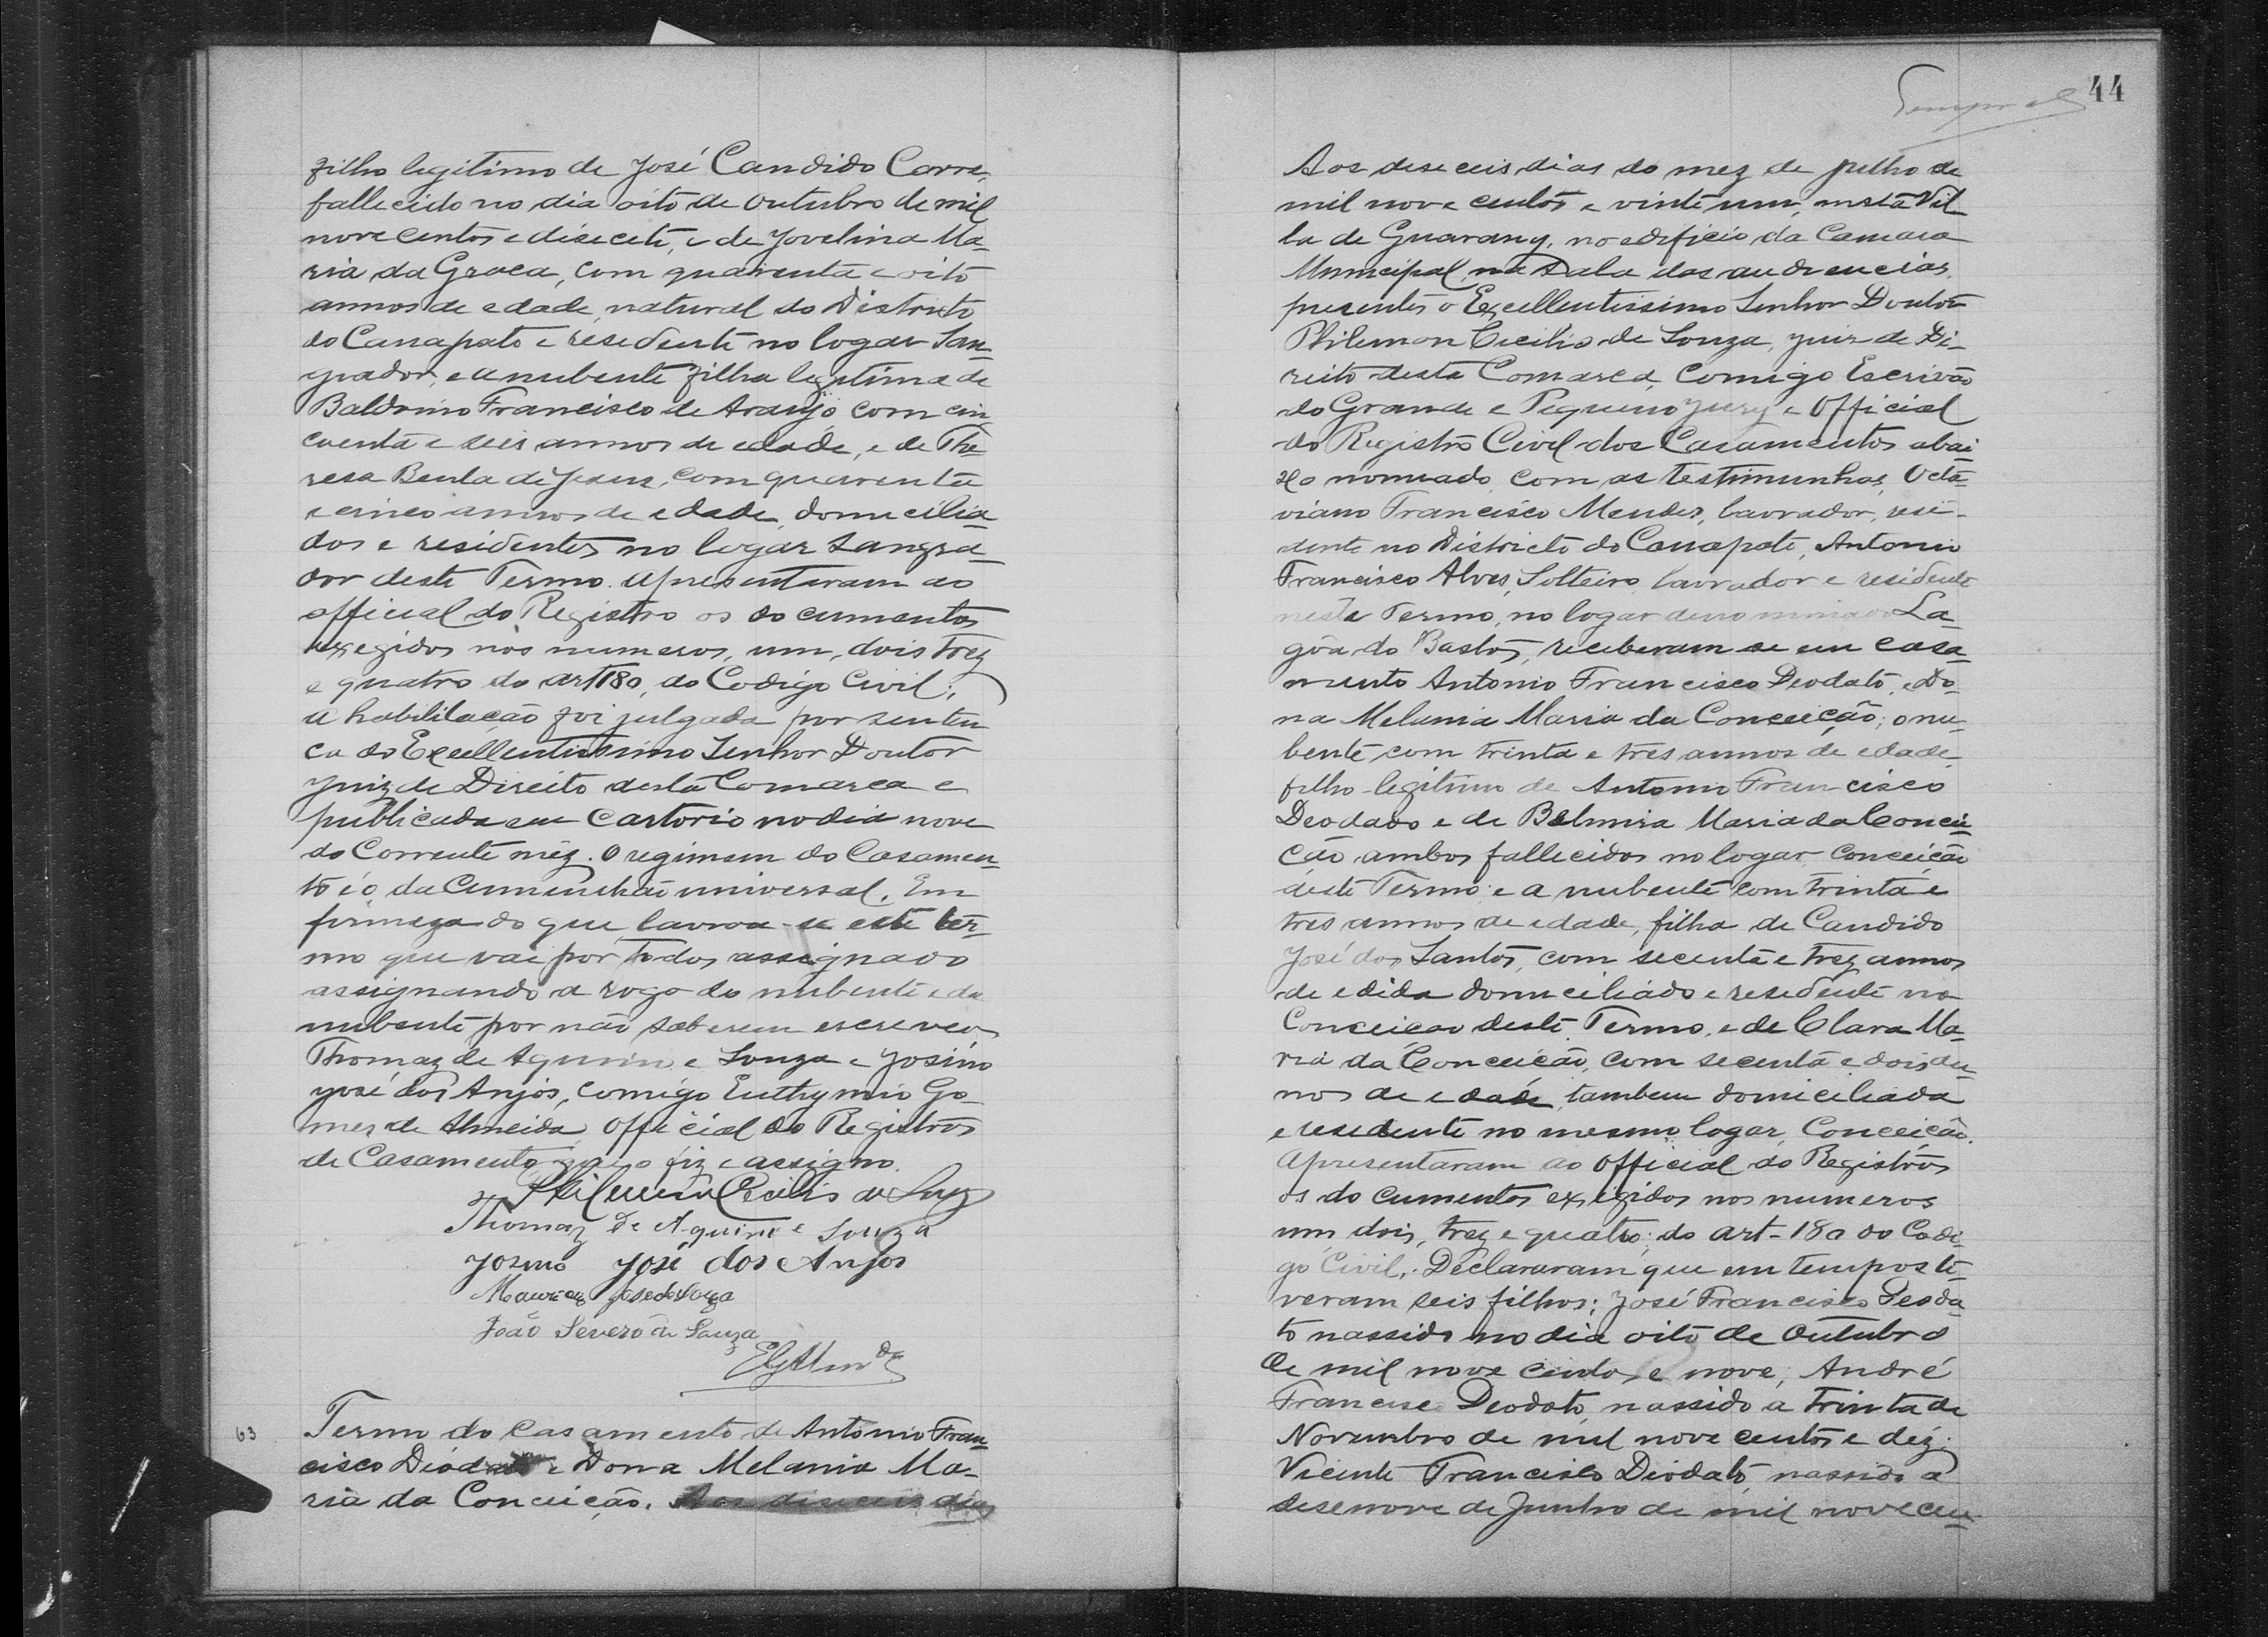 filho legitimo de José Candido Corre,
fallecido no dia oito de outubro de mil
nove centos e disecete, e de Jovelina Ma-
ria da Graca, com quarenta e oito
annos de edade, natural do Districto
do Carrapato e residente no logar San-
grador, e a nubente filha legitima de
Baldoino Francisco de Araujo com cin
coenta e seis annos de edade, e de The-
resa Benta de Jesus, com quarenta
e cinco annos de edade, domicilia-
dos e residentes no logar Sangra-
dor deste Termo. Apresentaram ao
official do Registro os documentos
exegidos nos numeros, um, dois trez
e quatro do art 180, do Codigo Civil;
a habilitação foi julgada por senten
ca do Excellentissimo Senhor Doutor
Juiz de Direito desta Comarca e
publicada em Cartorio no dia nove
do Corrente mêz. O regimem do Casamen-
to é o da Cumunhão universal. Em
firmeza do que lavrou-se este ter-
mo que vai por todos assignado
assignando a rogo do nubente e da
nubente por não saberem escrever
Thomaz de Aquino e Souza e Josino
José dos Anjos, comigo Euthymio Go-
mes de Almeida official do Registros
de Casamento que o fiz e assigno.
Philemon Cecilio de Souza
Thomaz de Aquino e Souza
Josino José dos Anjos
Mauricio José de Souza
João Severo de Souza
EGAlm.da
63
Termo do casamento de Antonio Fran-
cisco Deodato e Dona Melania Ma-
ria da Conceição. Aos diseceis dias
44
Aos diseceis dias do mez de julho de
mil nove centos e vinte um, nesta Vil-
la de Guarany, no edificio da Camara
Municipal na Sala das audiencias,
presentes o Excellentissimo Senhor Doutor
Philemon Cecilio de Souza, juiz de Di-
reito desta Comarca, Comigo Escrivão
do Grande e Pequeno Jury e Official
do Registro Civil dos Casamentos abai-
xo nomeado, com as testimunhas, Octa-
viano Francisco Mendes, lavrador, resi-
dente no Districto do Carrapato, Antonio
Francisco Alves, Solteiro, lavrador e residente
neste Termo, no logar denominado La-
gôa do Bastos, receberam-se em casa-
mento Antonio Francisco Deodato, e Do-
na Melania Maria da Conceição; o nu-
bente com trinta e tres annos de edade,
filho legitimo de Antonio Francisco
Deodato e de Belmira Maria da Concei-
ção, ambos fallecidos no logar Conceição
deste Termo; e a nubente com trinta e
tres annos de edade, filha de Candido
José dos Santos, com secenta e trez annos
de edida domiciliado e residente na
Conceicao deste Termo, e de Clara Ma-
ria da Conceicão, com secenta e dois an-
nos de edade, tambem domiciliada
e residente no mesmo logar, Conceição.
Apresentaram ao Official do Registros
os documentos exigidos nos numeros
um, dois, trez e quatro, do art-180 do Codi-
go Civil. Declararam que em tempos ti-
veram seis filhos; José Francisco Deoda-
to nassido no dia oito de Outubro
de mil nove centos e nove, André
Francisco Deodato, nassido a trinta de
Novembro de mil nove centos e dez;
Vicente Francisco Deodato, nassido a
desenove de Junho de mil novecen-